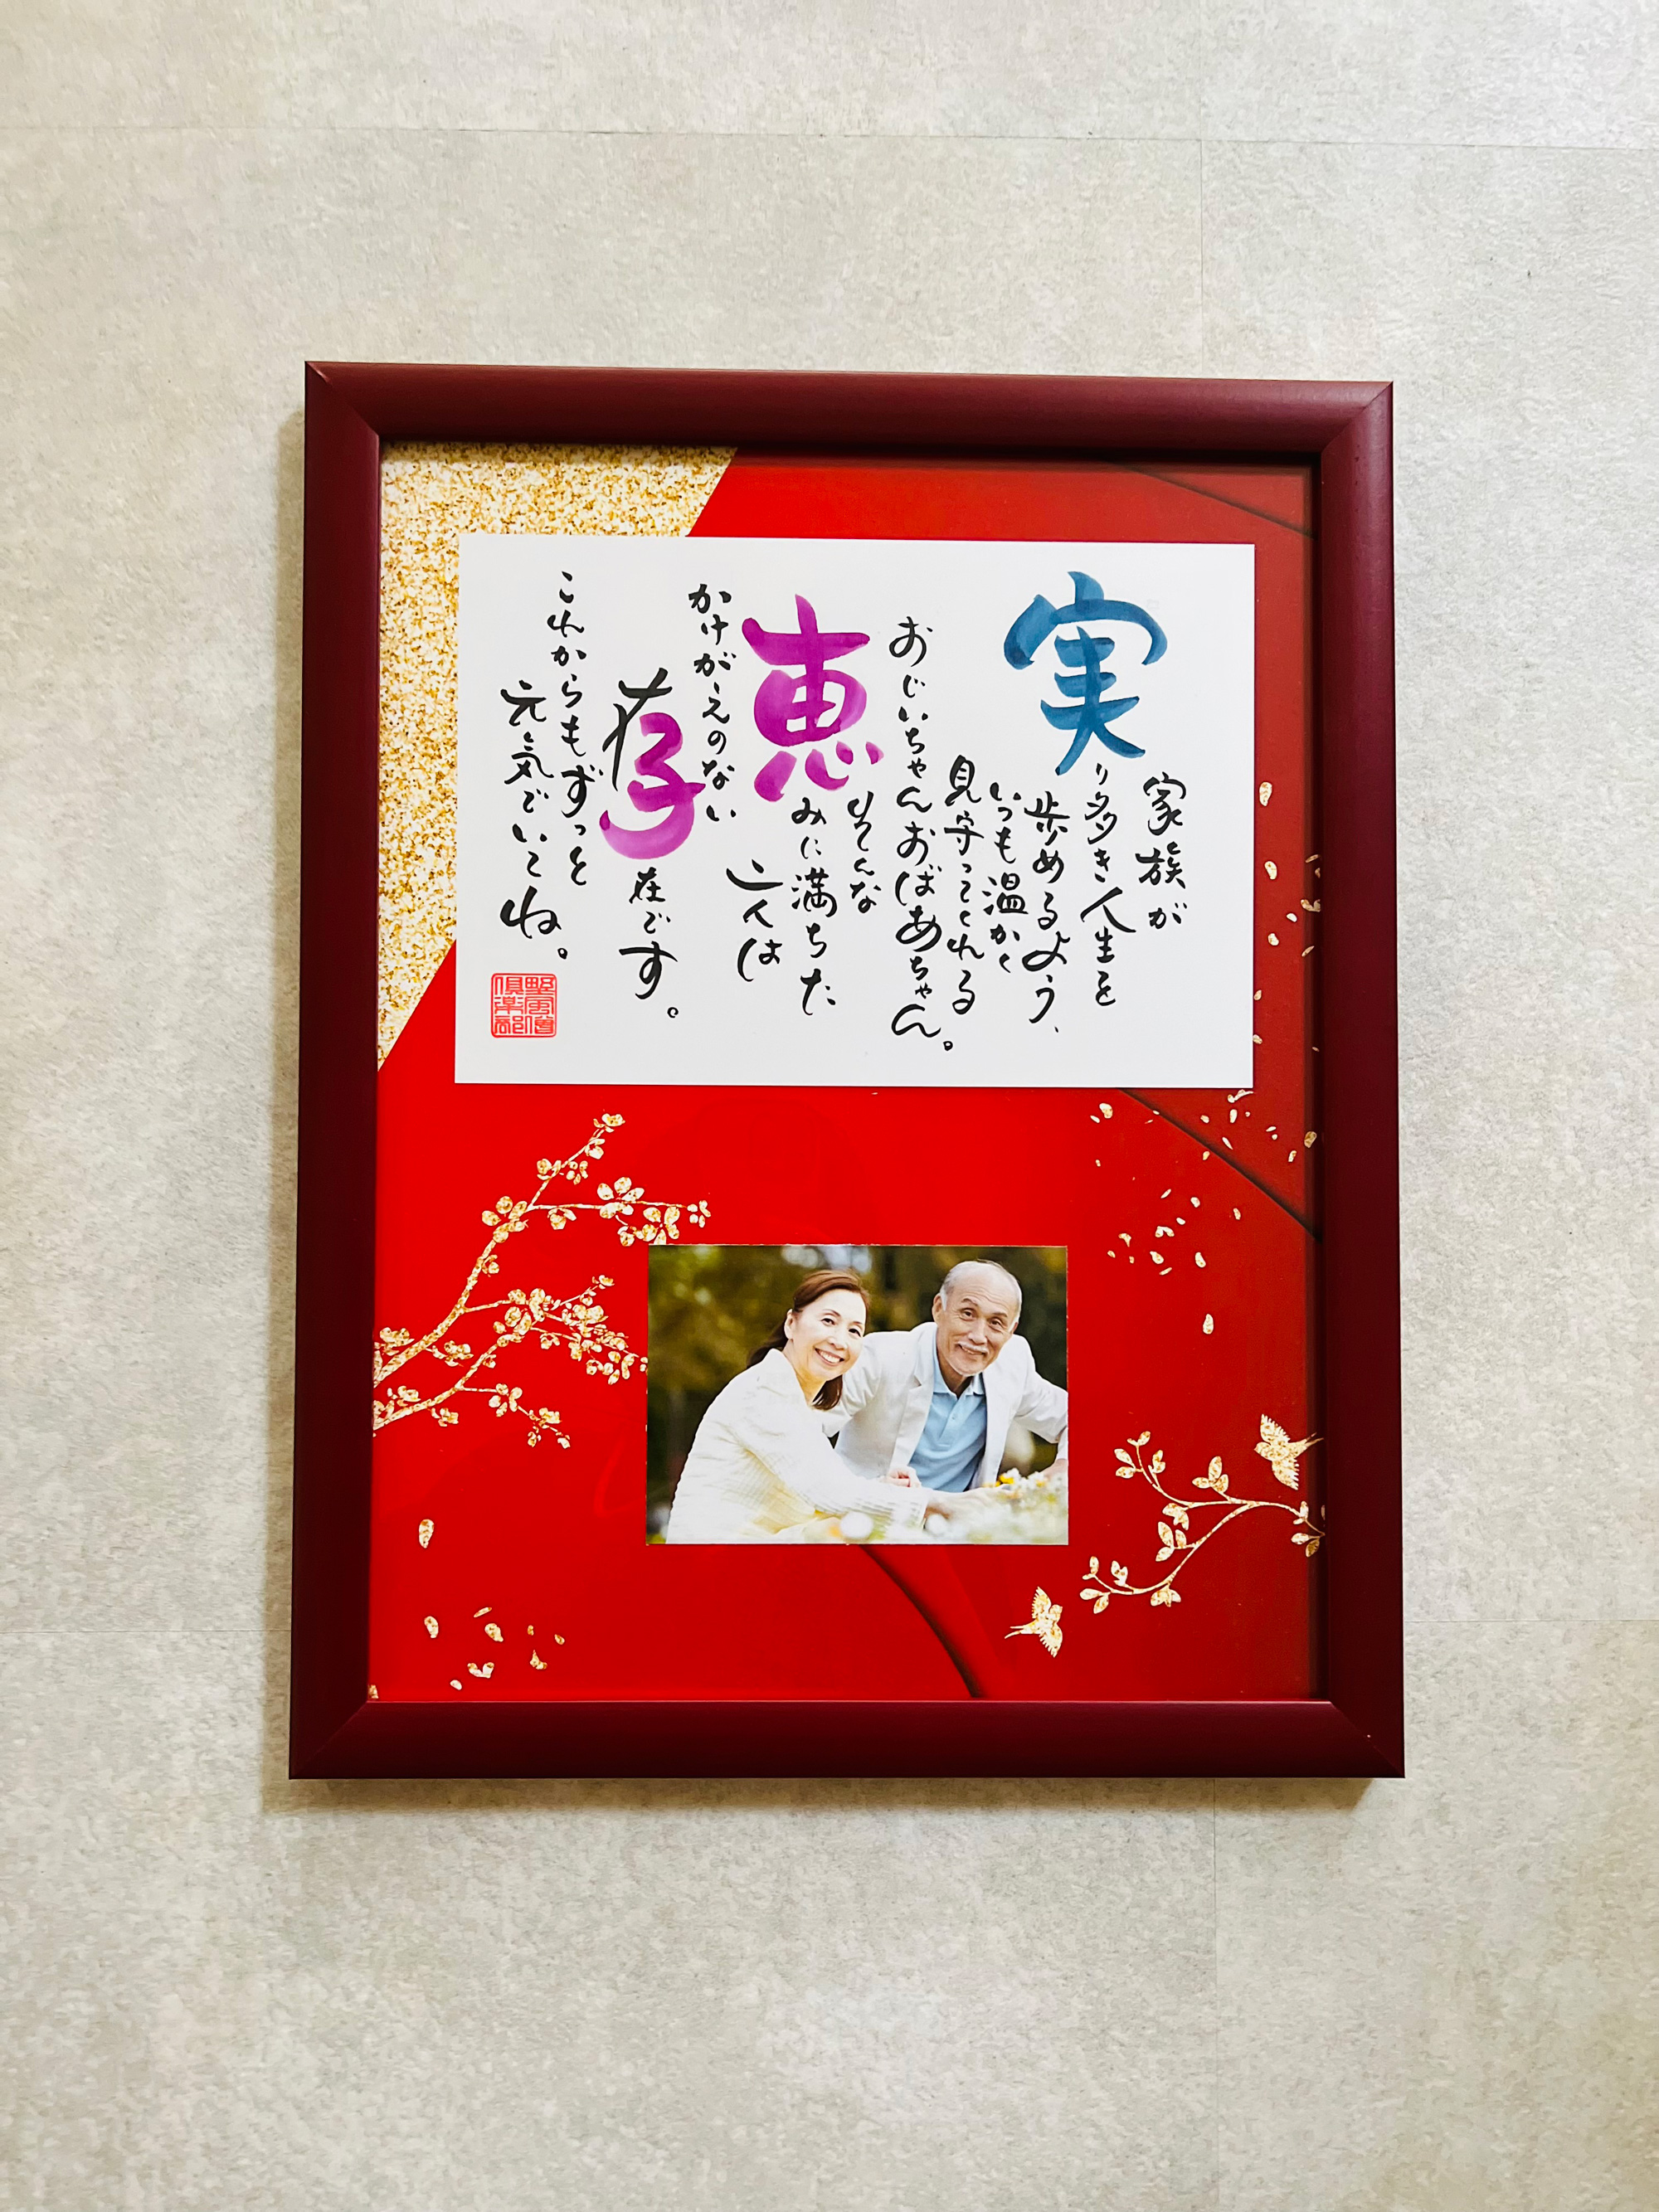 家族が
実り多き人生を
歩めるよう、
いつも温かく
見守ってくれる
おじいちゃんおばあちゃん。
そんな
恵みに満ちた
二人は
かけがえのない
存在です。
これからもずっと
元気でいてね。
倶楽部